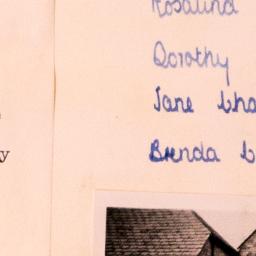 Rosalind
Dorothy
Jane Cha
y
Brenda